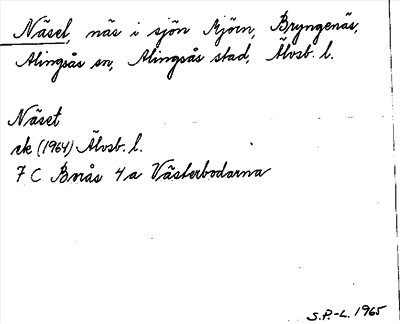 Näset, näs i sjön Mjörn, Bryngenäs,
Alingsås sn, Alingsås stad, Älvsb. l.
Näset
ek (1964) Älvsb. l.
7 C Borås 4a Västerbodarna
S.P.-L. 1965